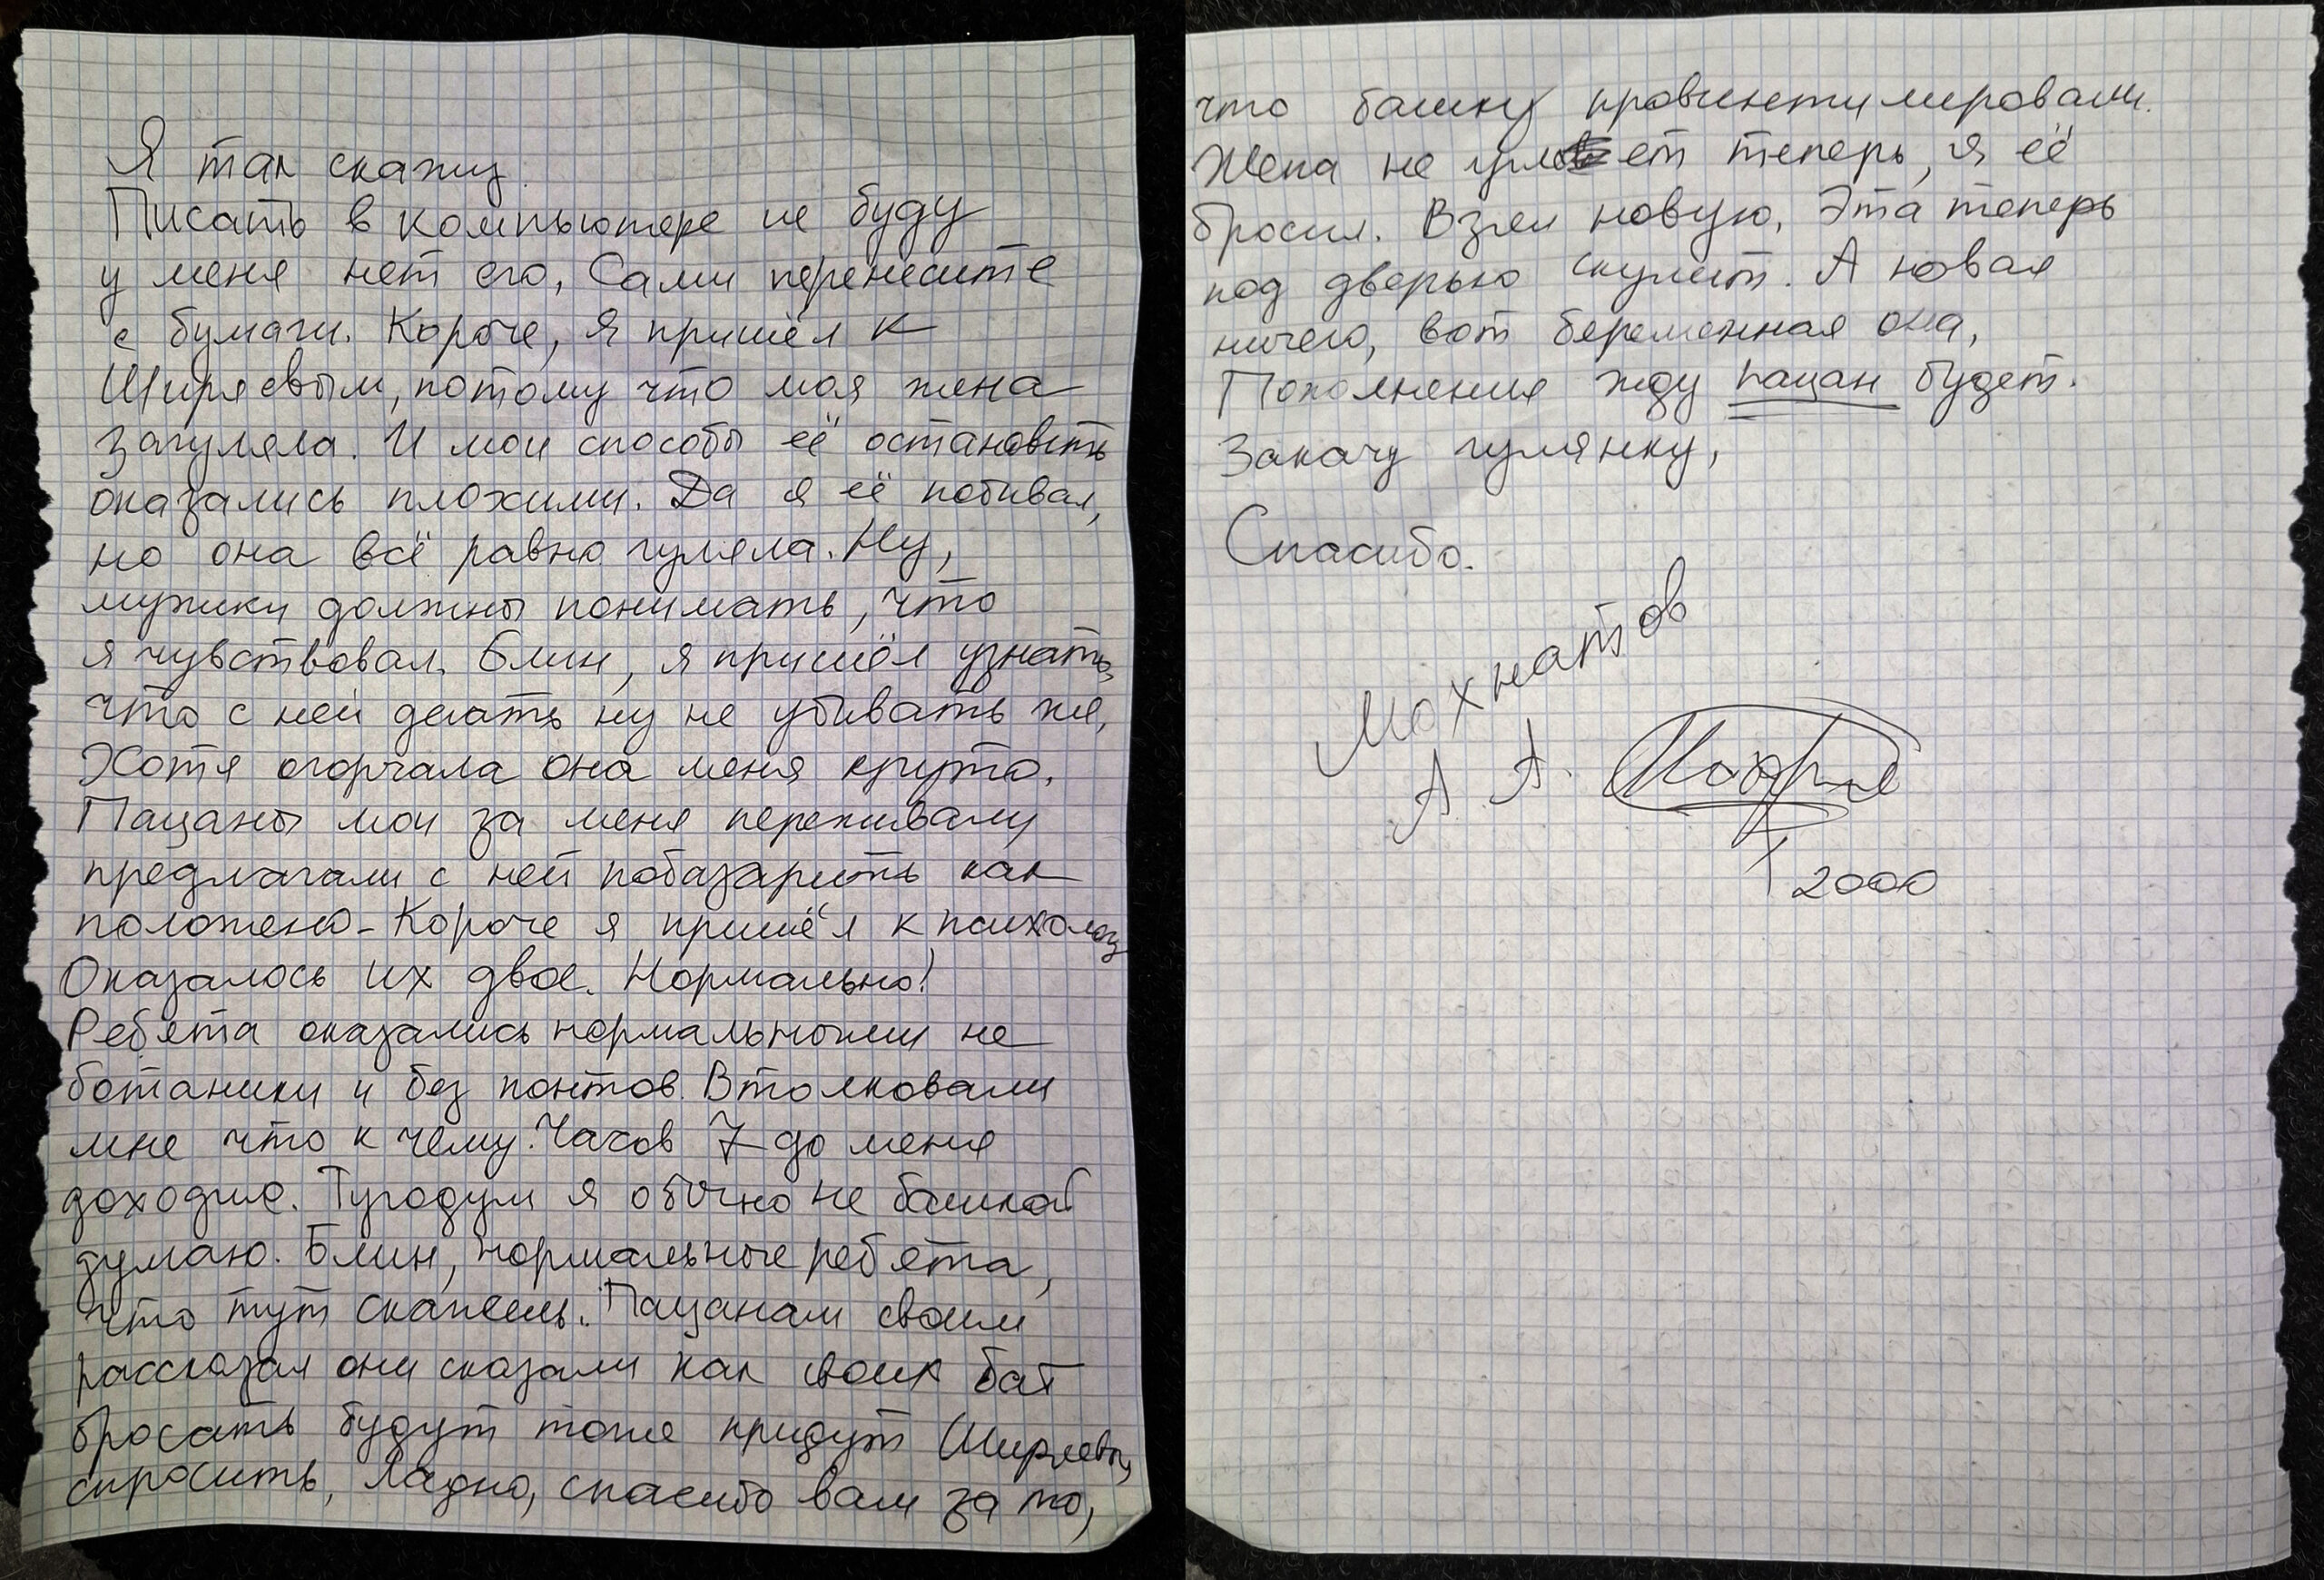 Я так скажу.
Писать в компьютере не буду
у меня нет его, Сами перенесите
с бумаги. Короче, я пришёл к
Ширяевым, потому что моя жена
загуляла. И мои способы её остановить
оказались плохими. Да я её побивал,
но она всё равно гуляла. Ну,
мужики должны понимать, что
я чувствовал. Блин, я пришёл узнать,
что с ней делать ну не убивать же,
Хотя огорчала она меня круто.
Пацаны мои за меня переживали
предлагали с ней побазарить как
положено - Короче я пришёл к психологу
Оказалось их двое. Нормально!
Ребята оказались нормальными не
ботаники и без понтов. Втолковали
мне что к чему. Часов 7 до меня
доходило. Тугодум я обычно не башкой
думаю. Блин, нормальные ребята,
что тут скажешь. Пацанам своим
рассказал они сказали как своих баб
бросать будут тоже придут Ширяевых
спросить, Ладно, спасибо вам за то,
что башку провинтилировали.
Жена не гуляет теперь, я её
бросил. Взял новую. Эта теперь
под дверью скулит. А новая
ничего, вот беременная она,
Пополнения жду пацан будет.
Закачу гулянку,
Спасибо.
Мохнатов
А. А.
2000